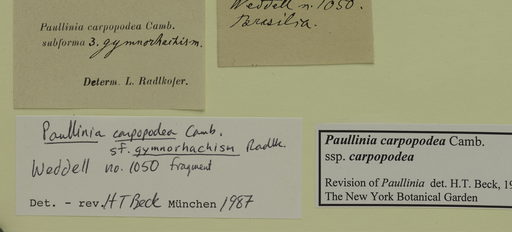 Paullinia carpopodea Camb.
subforma 3. gymnorhachism.
Determ. L. Radlkofer.
Weddell n. 1050.
Brasilia.
Paullinia carpopodea Camb.
sf. gymnorhachism Radlk.
Weddell no. 1050 fragment
Det. - rev. H T Beck München 1987
Paullinia carpopodea Camb.
ssp. carpopodea
Revision of Paullinia det. H.T. Beck, 19
The New York Botanical Garden